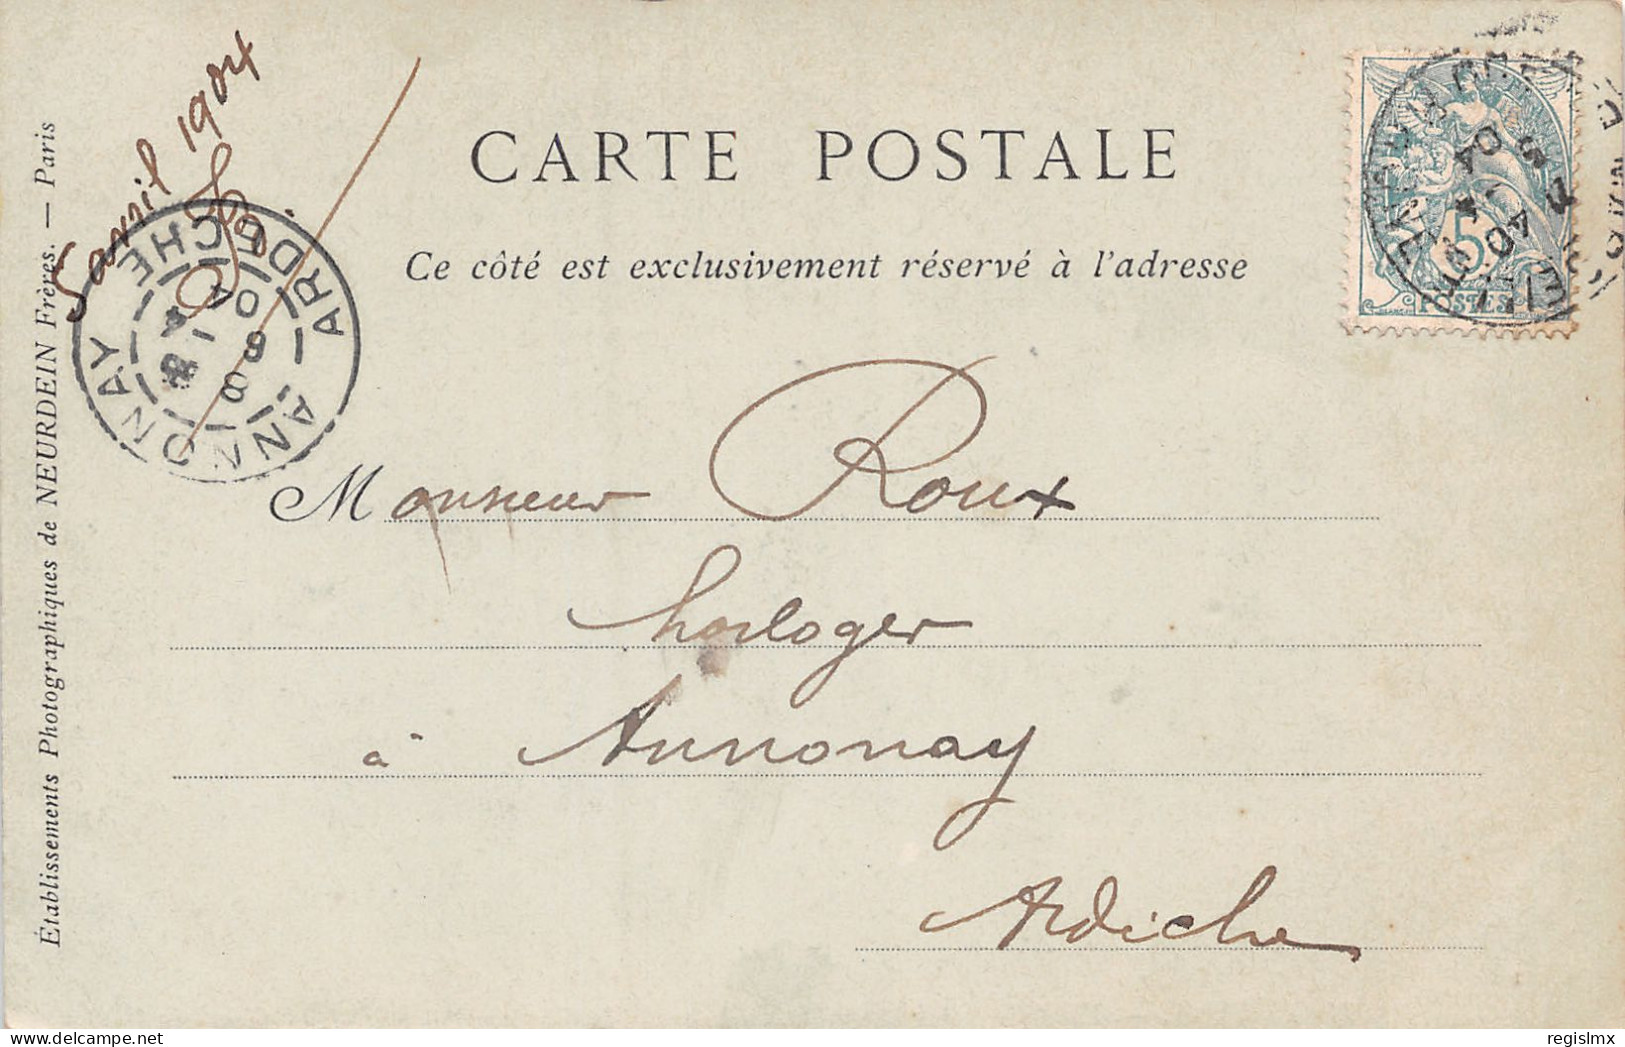 5 avril 1904
CARTE POSTALE
Ce côté est exclusivement réservé à l'adresse
5
POSTES
ANNONAY
ARDÈCHE
8
6
-4
04
Monsieur Roux
horloger
à Annonay
Ardèche
Établissements Photographiques de NEURDEIN Frères. — Paris
regislmx